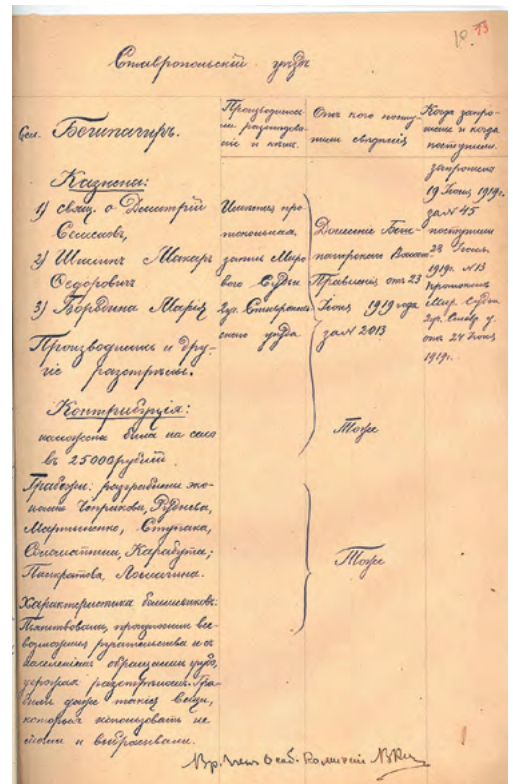 13
Ставропольскій уѣздъ
Сел. Бешпагиръ.
Производилось
ли разслѣдова-
ніе и кѣмъ.
Отъ кого посту-
пили свѣдѣнія
Когда запро-
шены и когда
поступили.
Казнены:
1) свящ. о Дмитрій
Семеновъ,
2) Шишкинъ Макаръ
Федоровичъ
3) Бородина Марія
Производились и дру-
гіе разстрѣлы.
Имѣется про
токольная
запись Миро
вого Судьи
2уч. Ставрополь
скаго уѣзда
Донесеніе Беш-
пагирскаго Волост.
Правленія отъ 23
Іюня 1919 года
за № 2013
запрошены
19 Іюня 1919г.
за № 45
поступили
28 Іюня
1919г. № 13
протоколъ
Мир. Судьи
2уч. Ставр у.
отъ 24 Іюня
1919г.
Контрибуція:
наложена была на село
въ 25000 рублей.
Тоже
Грабежи: разграблены эко-
номіи Чепракова, Руднева,
Мартыненко, Ступака,
Карабута;
Тоже
Характеристика большевиковъ:
Пьянствовали, производили все-
возможныя ругательства и съ
населеніемъ обращались худо,
угрожая разстрѣломъ. Гра-
били даже такія вещи,
которыя использовать не
могли и выбрасывали.
Вр. член Особ. Комиссіи